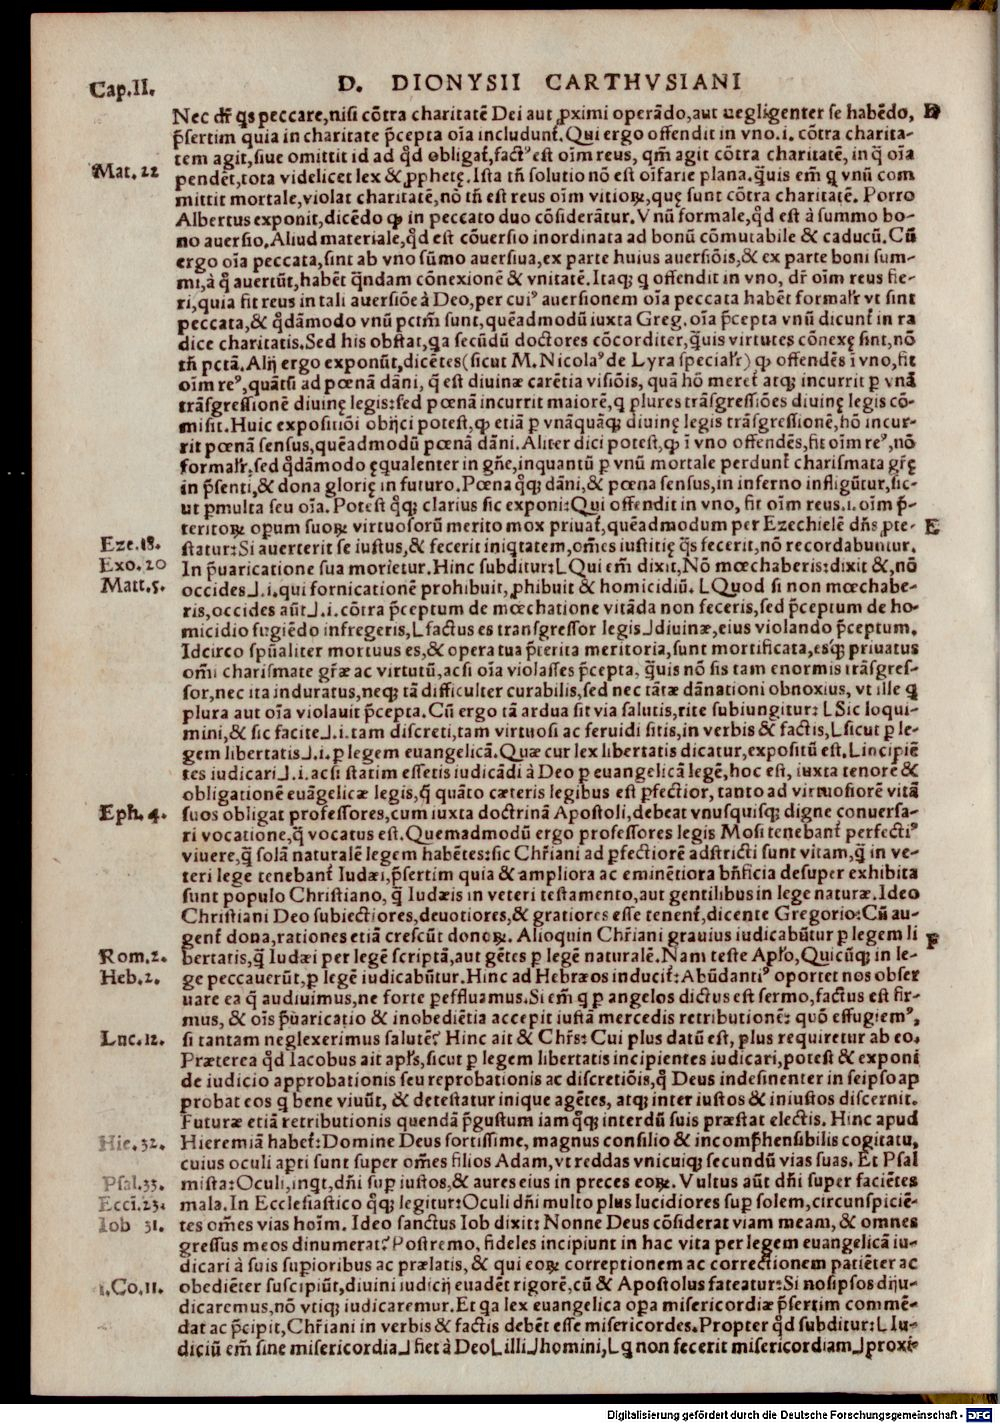 Cap.II. D. DIONYSII CARTHVSIANI
Nec dr̄ qs peccare,nisi cōtra charitatē Dei aut ꝓximi operādo,aut negligenter se habēdo, D
p̄sertim quia in charitate p̄cepta oīa includunt᷑. Qui ergo offendit in vno.i. cōtra charita-
tem agit, siue omittit id ad qd̄ obligat᷑, factꝰ est oīm reus, qm̄ agit cōtra charitatē, in q̄ oīa
Mat. 22 pendēt, tota videlicet lex & ꝓphetę. Ista tn̄ solutio nō est oīfarie plana. q̄uis em̄ q vnū com
mittit mortale, violat charitatē, nō tn̄ est reus oīm vitioꝝ, quę sunt cōtra charitatē. Porro
Albertus exponit, dicēdo ꝙ in peccato duo cōsiderātur. Vnū formale, qd̄ est à summo bo-
no auersio. Aliud materiale, qd̄ est cōuersio inordinata ad bonū cōmutabile & caducū. Cū
ergo oīa peccata, sint ab vno sūmo auersiua, ex parte huius auersiōis, & ex parte boni sum-
mi, à q̊ auertūt, habēt q̄ndam cōnexionē & vnitatē. Itaqꝫ q offendit in vno, dr̄ oīm reus fie-
ri, quia fit reus in tali auersiōe à Deo, per cuiꝰ auersionem oīa peccata habēt formalr̄ vt sint
peccata, & qd̄āmodo vnū pctm̄ sunt, quēadmodū iuxta Greg. oīa p̄cepta vnū dicunt᷑ in ra
dice charitatis. Sed his obstat, qa secūdū doctores cōcorditer, q̄uis virtutes cōnexę sint, nō
tn̄ pctā. Alij ergo exponūt, dicētes (sicut M. Nicolaꝰ de Lyra specialr̄) ꝙ offendēs ī vno, fit
oīm reꝰ, quātū ad pœnā dāni, q̄ est diuinæ carētia visiōis, quā hō meret᷑ atqꝫ incurrit ꝑ vnā
trāsgressionē diuinę legis: sed pœnā incurrit maiorē, q plures trāsgressiōes diuinę legis cō-
misit. Huic expositiōi obijci potest, ꝙ etiā ꝑ vnāquāqꝫ diuinę legis trāsgressionē, hō incur-
rit pœnā sensus, quēadmodū pœnā dāni. Aliter dici potest, ꝙ ī vno offendēs, fit oīm reꝰ, nō
formalr̄, sed qd̄āmodo ęqualenter in gn̄e, inquantū ꝑ vnū mortale perdunt᷑ charismata gr̄ę
in p̄senti, & dona glorię in futuro. Pœna qꝫ dāni, & pœna sensus, in inferno infligūtur, sic-
ut ꝑmulta seu oīa. Potest qꝫ clarius sic exponi: Qui offendit in vno, fit oīm reus.i. oīm p̄-
teritoꝝ operum suoꝝ virtuosorū merito mox priuat᷑, quēadmodum per Ezechielē dn̄s ꝓte- E
Eze.18. statur: Si auerterit se iustus, & fecerit iniqtatem, om̄es iustitię q̄s fecerit, nō recordabuntur.
Exo. 20 In p̄uaricatione sua morietur. Hinc subditur: L Qui em̄ dixit, Nō mœchaberis: dixit &, nō
Matt.5. occides ⅃.i. qui fornicationē prohibuit, ꝓhibuit & homicidiū. L Quod si non mœchabe-
ris, occides aūt ⅃.i. cōtra p̄ceptum de mœchatione vitāda non feceris, sed p̄ceptum de ho-
micidio fugiēdo infregeris, L factus es transgressor legis ⅃ diuinæ, eius violando p̄ceptum.
Idcirco spūaliter mortuus es, & opera tua p̄terita meritoria, sunt mortificata, esqꝫ priuatus
om̄i charismate gr̄æ ac virtutū, acsi oīa violasses p̄cepta, q̄uis nō sis tam enormis trāsgres-
sor, nec ita induratus, neqꝫ tā difficulter curabilis, sed nec tātæ dānationi obnoxius, vt ille q
plura aut oīa violauit p̄cepta. Cū ergo tā ardua sit via salutis, rite subiungitur: L Sic loqui-
mini, & sic facite ⅃.i. tam discreti, tam virtuosi ac feruidi sitis, in verbis & factis, L sicut ꝑ le-
gem libertatis ⅃.i. ꝑ legem euangelicā. Quæ cur lex libertatis dicatur, expositū est. L incipiē
tes iudicari ⅃.i. acsi statim essetis iudicādi à Deo ꝑ euangelicā legē, hoc est, iuxta tenorē &
obligationē euāgelicæ legis, q̄ quāto cæteris legibus est ꝑfectior, tanto ad virtuosiorē vitā
Eph. 4. suos obligat professores, cum iuxta doctrinā Apostoli, debeat vnusquisqꝫ digne conuersa-
ri vocatione, q̄ vocatus est. Quemadmodū ergo professores legis Mosi tenebant᷑ perfectiꝰ
viuere, q̄ solā naturalē legem habētes: sic Chr̄iani ad ꝑfectiorē adstricti sunt vitam, q̄ in ve-
teri lege tenebant᷑ Iudæi, p̄sertim quia & ampliora ac eminētiora bn̄ficia desuper exhibita
sunt populo Christiano, q̄ Iudæis in veteri testamento, aut gentilibus in lege naturæ. Ideo
Christiani Deo subiectiores, deuotiores, & gratiores esse tenent᷑, dicente Gregorio: Cū au-
gent᷑ dona, rationes etiā crescūt donoꝝ. Alioquin Chr̄iani grauius iudicabūtur ꝑ legem li F
Rom.2. bertatis, q̄ Iudæi per legē scriptā, aut gētes ꝑ legē naturalē. Nam teste Apl̄o, Quicūqꝫ in le-
Heb.2. ge peccauerūt, ꝑ legē iudicabūtur. Hinc ad Hebræos inducit᷑: Abūdantiꝰ oportet nos obser
uare ea q̄ audiuimus, ne forte ꝑeffluamus. Si em̄ q ꝑ angelos dictus est sermo, factus est fir-
mus, & oīs p̄uaricatio & inobediētia accepit iustā mercedis retributionē: quō effugiemꝰ,
Luc.12. si tantam neglexerimus salutē? Hinc ait & Chr̄s: Cui plus datū est, plus requiretur ab eo.
Præterea qd̄ Iacobus ait apl̄s, sicut ꝑ legem libertatis incipientes iudicari, potest & exponi
de iudicio approbationis seu reprobationis ac discretiōis, q̊ Deus indesinenter in seipso ap
probat eos q bene viuūt, & detestatur inique agētes, atqꝫ inter iustos & iniustos discernit.
Futuræ etiā retributionis quendā p̄gustum iam qꝫ interdū suis præstat electis. Hinc apud
Hie. 32. Hieremiā habet᷑: Domine Deus fortissime, magnus consilio & incomp̄hensibilis cogitatu,
cuius oculi aꝑti sunt super om̄es filios Adam, vt reddas vnicuiqꝫ secundū vias suas. Et Psal
Psal.33. mista: Oculi, inqt, dn̄i suꝑ iustos, & aures eius in preces eoꝝ. Vultus aūt dn̄i super faciētes
Eccl.23. mala. In Ecclesiastico qꝫ legitur: Oculi dn̄i multo plus lucidiores suꝑ solem, circunspiciē-
Iob 31. tes om̄es vias hoīm. Ideo sanctus Iob dixit: Nonne Deus cōsiderat viam meam, & omnes
gressus meos dinumerat? Postremo, fideles incipiunt in hac vita per legem euangelicā iu-
dicari à suis suꝑioribus ac prælatis, & qui eoꝝ correptionem ac correctionem patiēter ac
1.Co.11. obediēter suscipiūt, diuini iudicij euadēt rigorē, cū & Apostolus fateatur: Si nosipsos diju-
dicaremus, nō vtiqꝫ iudicaremur. Et qa lex euangelica oꝑa misericordiæ p̄sertim commē-
dat ac p̄cipit, Chr̄iani in verbis & factis debēt esse misericordes. Propter qd̄ subditur: L Iu-
diciū em̄ sine misericordia ⅃ fiet à Deo L illi ⅃ homini, L q non fecerit misericordiam ⅃ proxi-
Digitalisierung gefördert durch die Deutsche Forschungsgemeinschaft - DFG